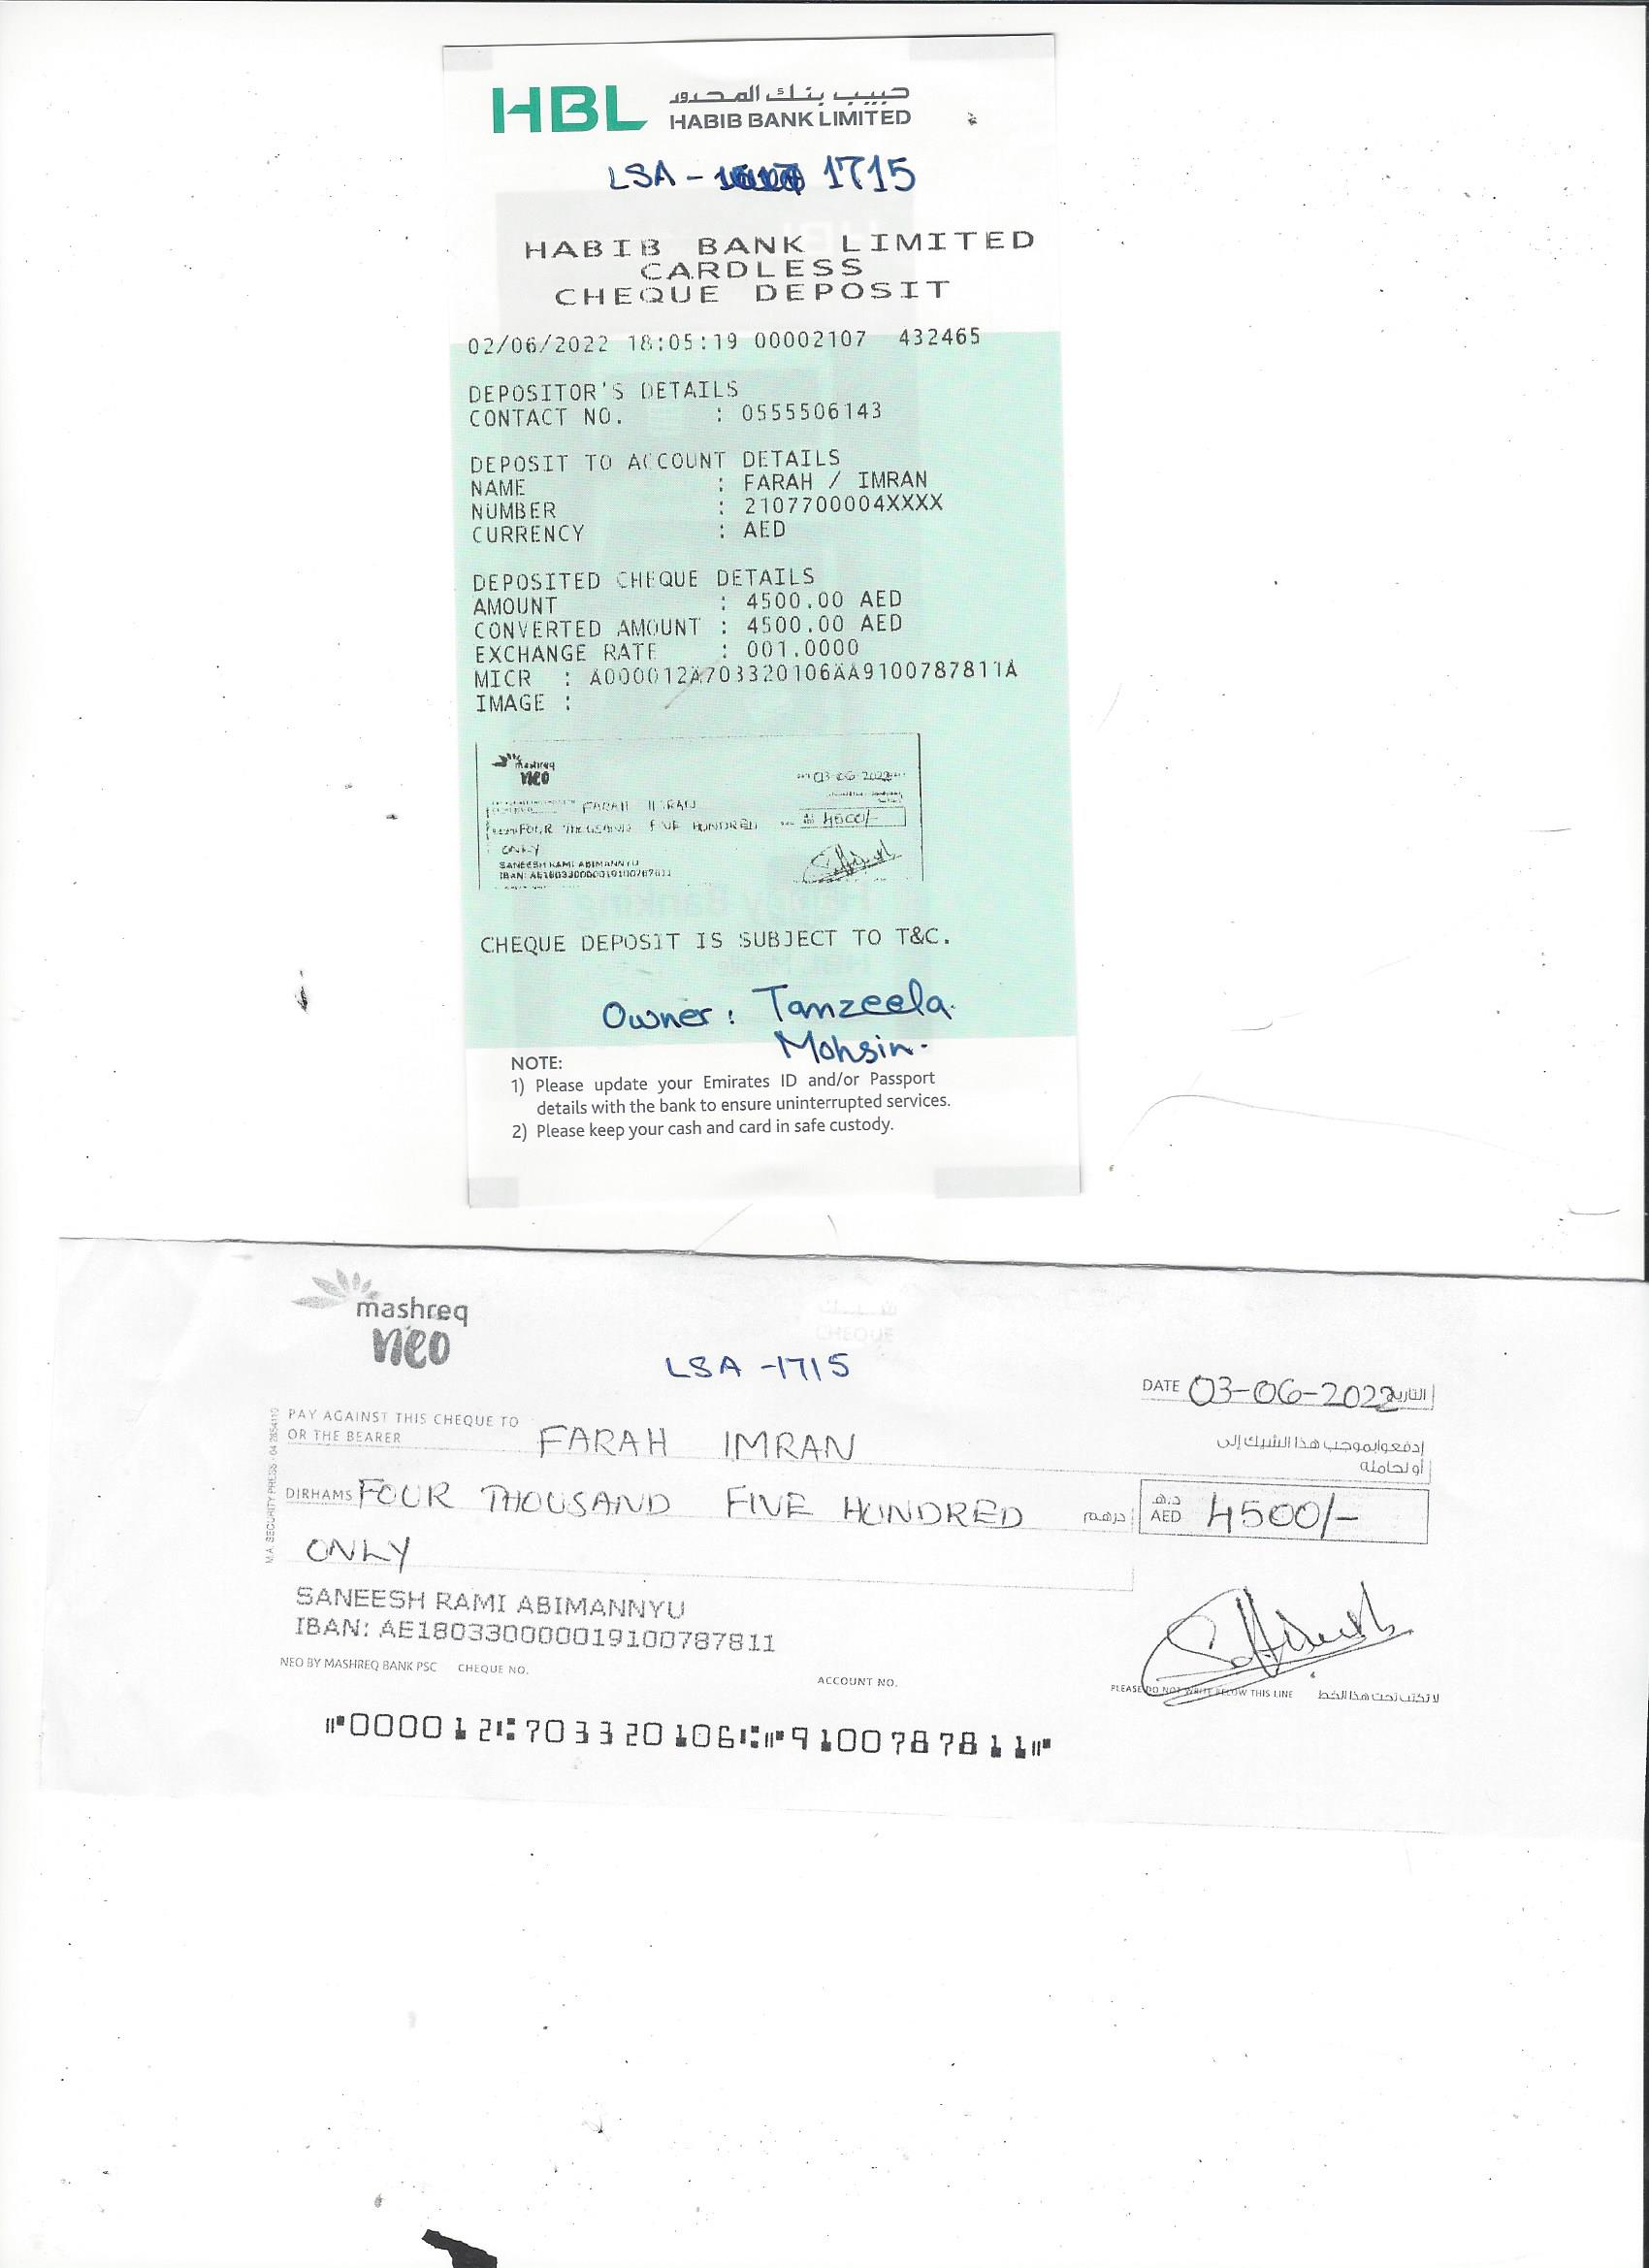 HBL حبيب بنك المحدود
HABIB BANK LIMITED
LSA - 1715
HABIB BANK LIMITED
CARDLESS
CHEQUE DEPOSIT
02/06/2022 18:05:19 00002107 432465
DEPOSITOR'S DETAILS
CONTACT NO. : 0555506143
DEPOSIT TO ACCOUNT DETAILS
NAME : FARAH / IMRAN
NUMBER : 2107700004XXXX
CURRENCY : AED
DEPOSITED CHEQUE DETAILS
AMOUNT : 4500.00 AED
CONVERTED AMOUNT : 4500.00 AED
EXCHANGE RATE : 001.0000
MICR : A000012A703320106AA9100787811A
IMAGE :
mashreq
neo
03-06-2022
FARAH IMRAN
FOUR THOUSAND FIVE HUNDRED 4500/-
ONLY
SANEESH RAMI ABIMANNYU
IBAN: AE180330000019100787811
CHEQUE DEPOSIT IS SUBJECT TO T&C.
Owner: Tanzeela
Mohsin.
NOTE:
1) Please update your Emirates ID and/or Passport
details with the bank to ensure uninterrupted services.
2) Please keep your cash and card in safe custody.
mashreq
neo
CHEQUE
LSA -1715
DATE 03-06-2022 التاريخ
PAY AGAINST THIS CHEQUE TO
OR THE BEARER FARAH IMRAN إدفعوا بموجب هذا الشيك إلى
أو لحامله
DIRHAMS FOUR THOUSAND FIVE HUNDRED درهم د.هـ AED 4500/-
ONLY
M.A. SECURITY PRESS - 04 2854110
SANEESH RAMI ABIMANNYU
IBAN: AE180330000019100787811
NEO BY MASHREQ BANK PSC CHEQUE NO. ACCOUNT NO.
PLEASE DO NOT WRITE BELOW THIS LINE لا تكتب تحت هذا الخط
⑈000012⑆703320106⑆⑈9100787811⑈